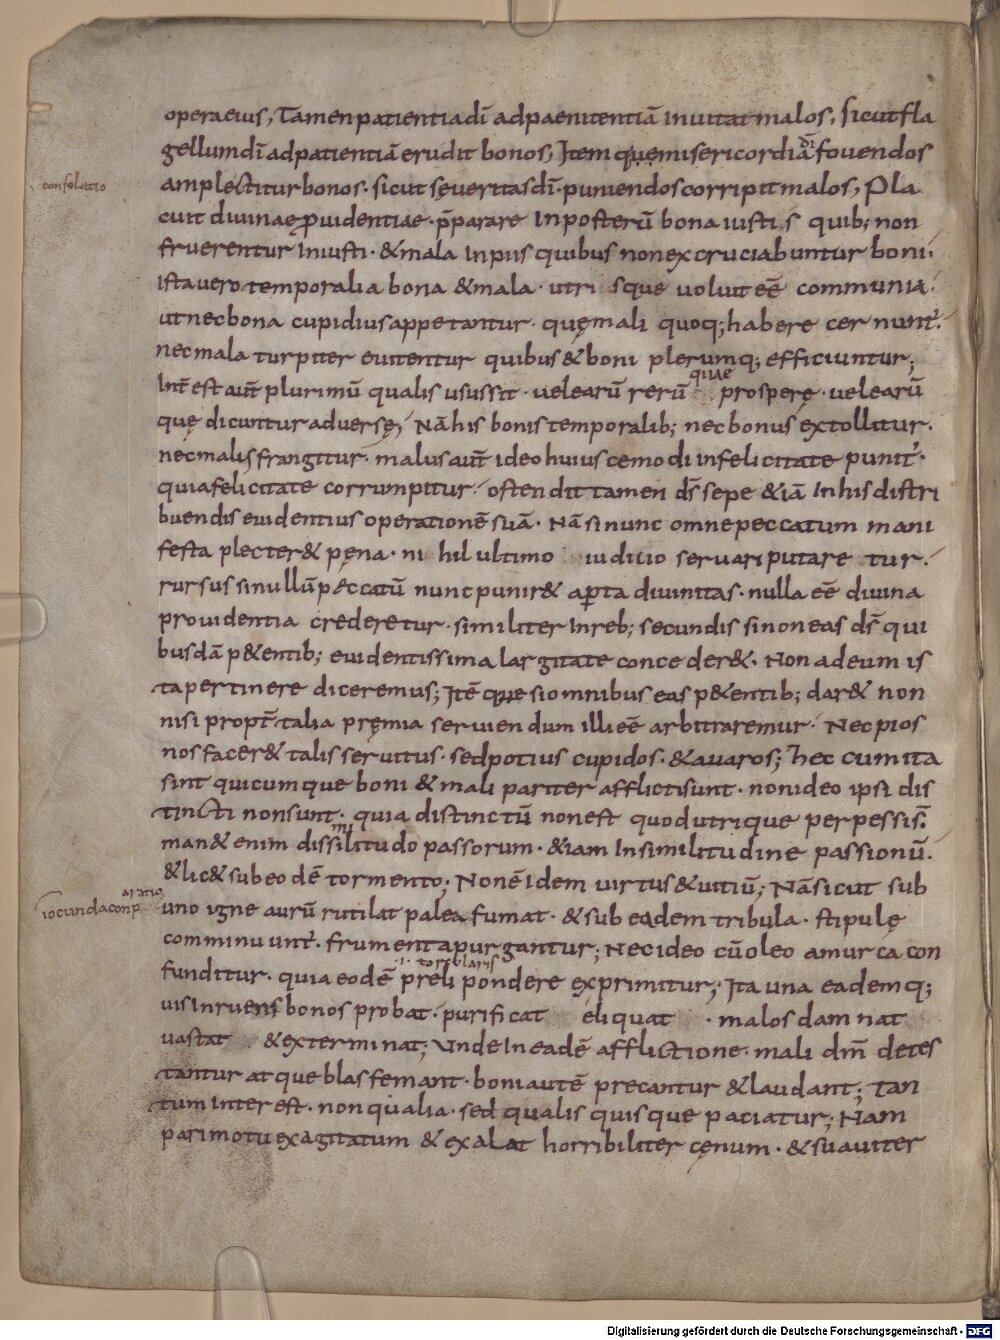 operaeius, Tamen patientia dī ad paenitentiā inuitat malos, sicut fla
gellum dī ad patientiā erudit bonos, Item quę misericordia dī fouendos
consolatio
amplectitur bonos · sicut seueritas dī · puniendos corripit malos, Pla
cuit diuinae ꝓuidentiae · p̄parare in posterū bona iustis quib; non
fruerentur iniusti · & mala inpiis quibus non excruciabuntur boni ·
ista uero temporalia bona & mala · utrisque uoluit eē communia ·
ut nec bona cupidius appetantur · quę mali quoq; habere cernunt ·
nec mala turpiter euitentur quibus & boni plerumq; efficiuntur;
Int̄est aut̄ plurimū qualis usus sit · uel earū rerū quae prosperę · uel earū
quę dicuntur aduersę; Nā his bonis temporalib; nec bonus extollitur ·
nec malis frangitur · malus aut̄ ideo huiuscemodi infelicitate punit̄ ·
quia felicitate corrumpitur · ostendit tamen ds̄ sepe & iā in his distri
buendis euidentius operationē suā · Nā si nunc omne peccatum mani
festa plecter& pęna · nihil ultimo iudicio seruari putaretur ·
rursus si nullū peccatū nunc punir& aꝑta diuinitas · nulla eē diuina
prouidentia crederetur · similiter in reb; secundis si non eas ds̄ qui
busdā p&entib; euidentissima largitate conceder& · Non ad eum is
ta pertinere diceremus; Itē que si omnibus eas p&entib; dar& non
nisi propt̄ talia pręmia seruiendum illi eē arbitraremur · Nec pios
nos facer& talis seruitus · sed potius cupidos · & auaros; hec cum ita
sint quicumque boni & mali pariter afflicti sunt · non ideo ipsi dis
tincti non sunt · quia distinctū non est quod utrique perpessi s̄ ·
man& enim dissimilitudo passorum · & iam in similitudine passionū ·
& lic& sub eodē tormento; Non ē idem uirtus & uitiū; Nā sicut sub
iocunda conparatio
uno igne aurū rutilat palea fumat · & sub eadem tribula · stipulę
comminuunt̄ · frumenta purgantur; Nec ideo cū oleo amurca con
·i· torcularis
funditur · quia eodē preli pondere exprimitur; Ita una eademq;
uis inruens bonos probat · purificat eliquat · malos damnat
uastat & exterminat; Unde in eadē afflictione · mali dm̄ detes
tantur atque blasfemant · boni autē precantur & laudant; tan
tum interest · non qualia · sed qualis quisque paciatur; Nam
pari motu exagitatum & exalat horribiliter cęnum · & suauiter
Digitalisierung gefördert durch die Deutsche Forschungsgemeinschaft - DFG